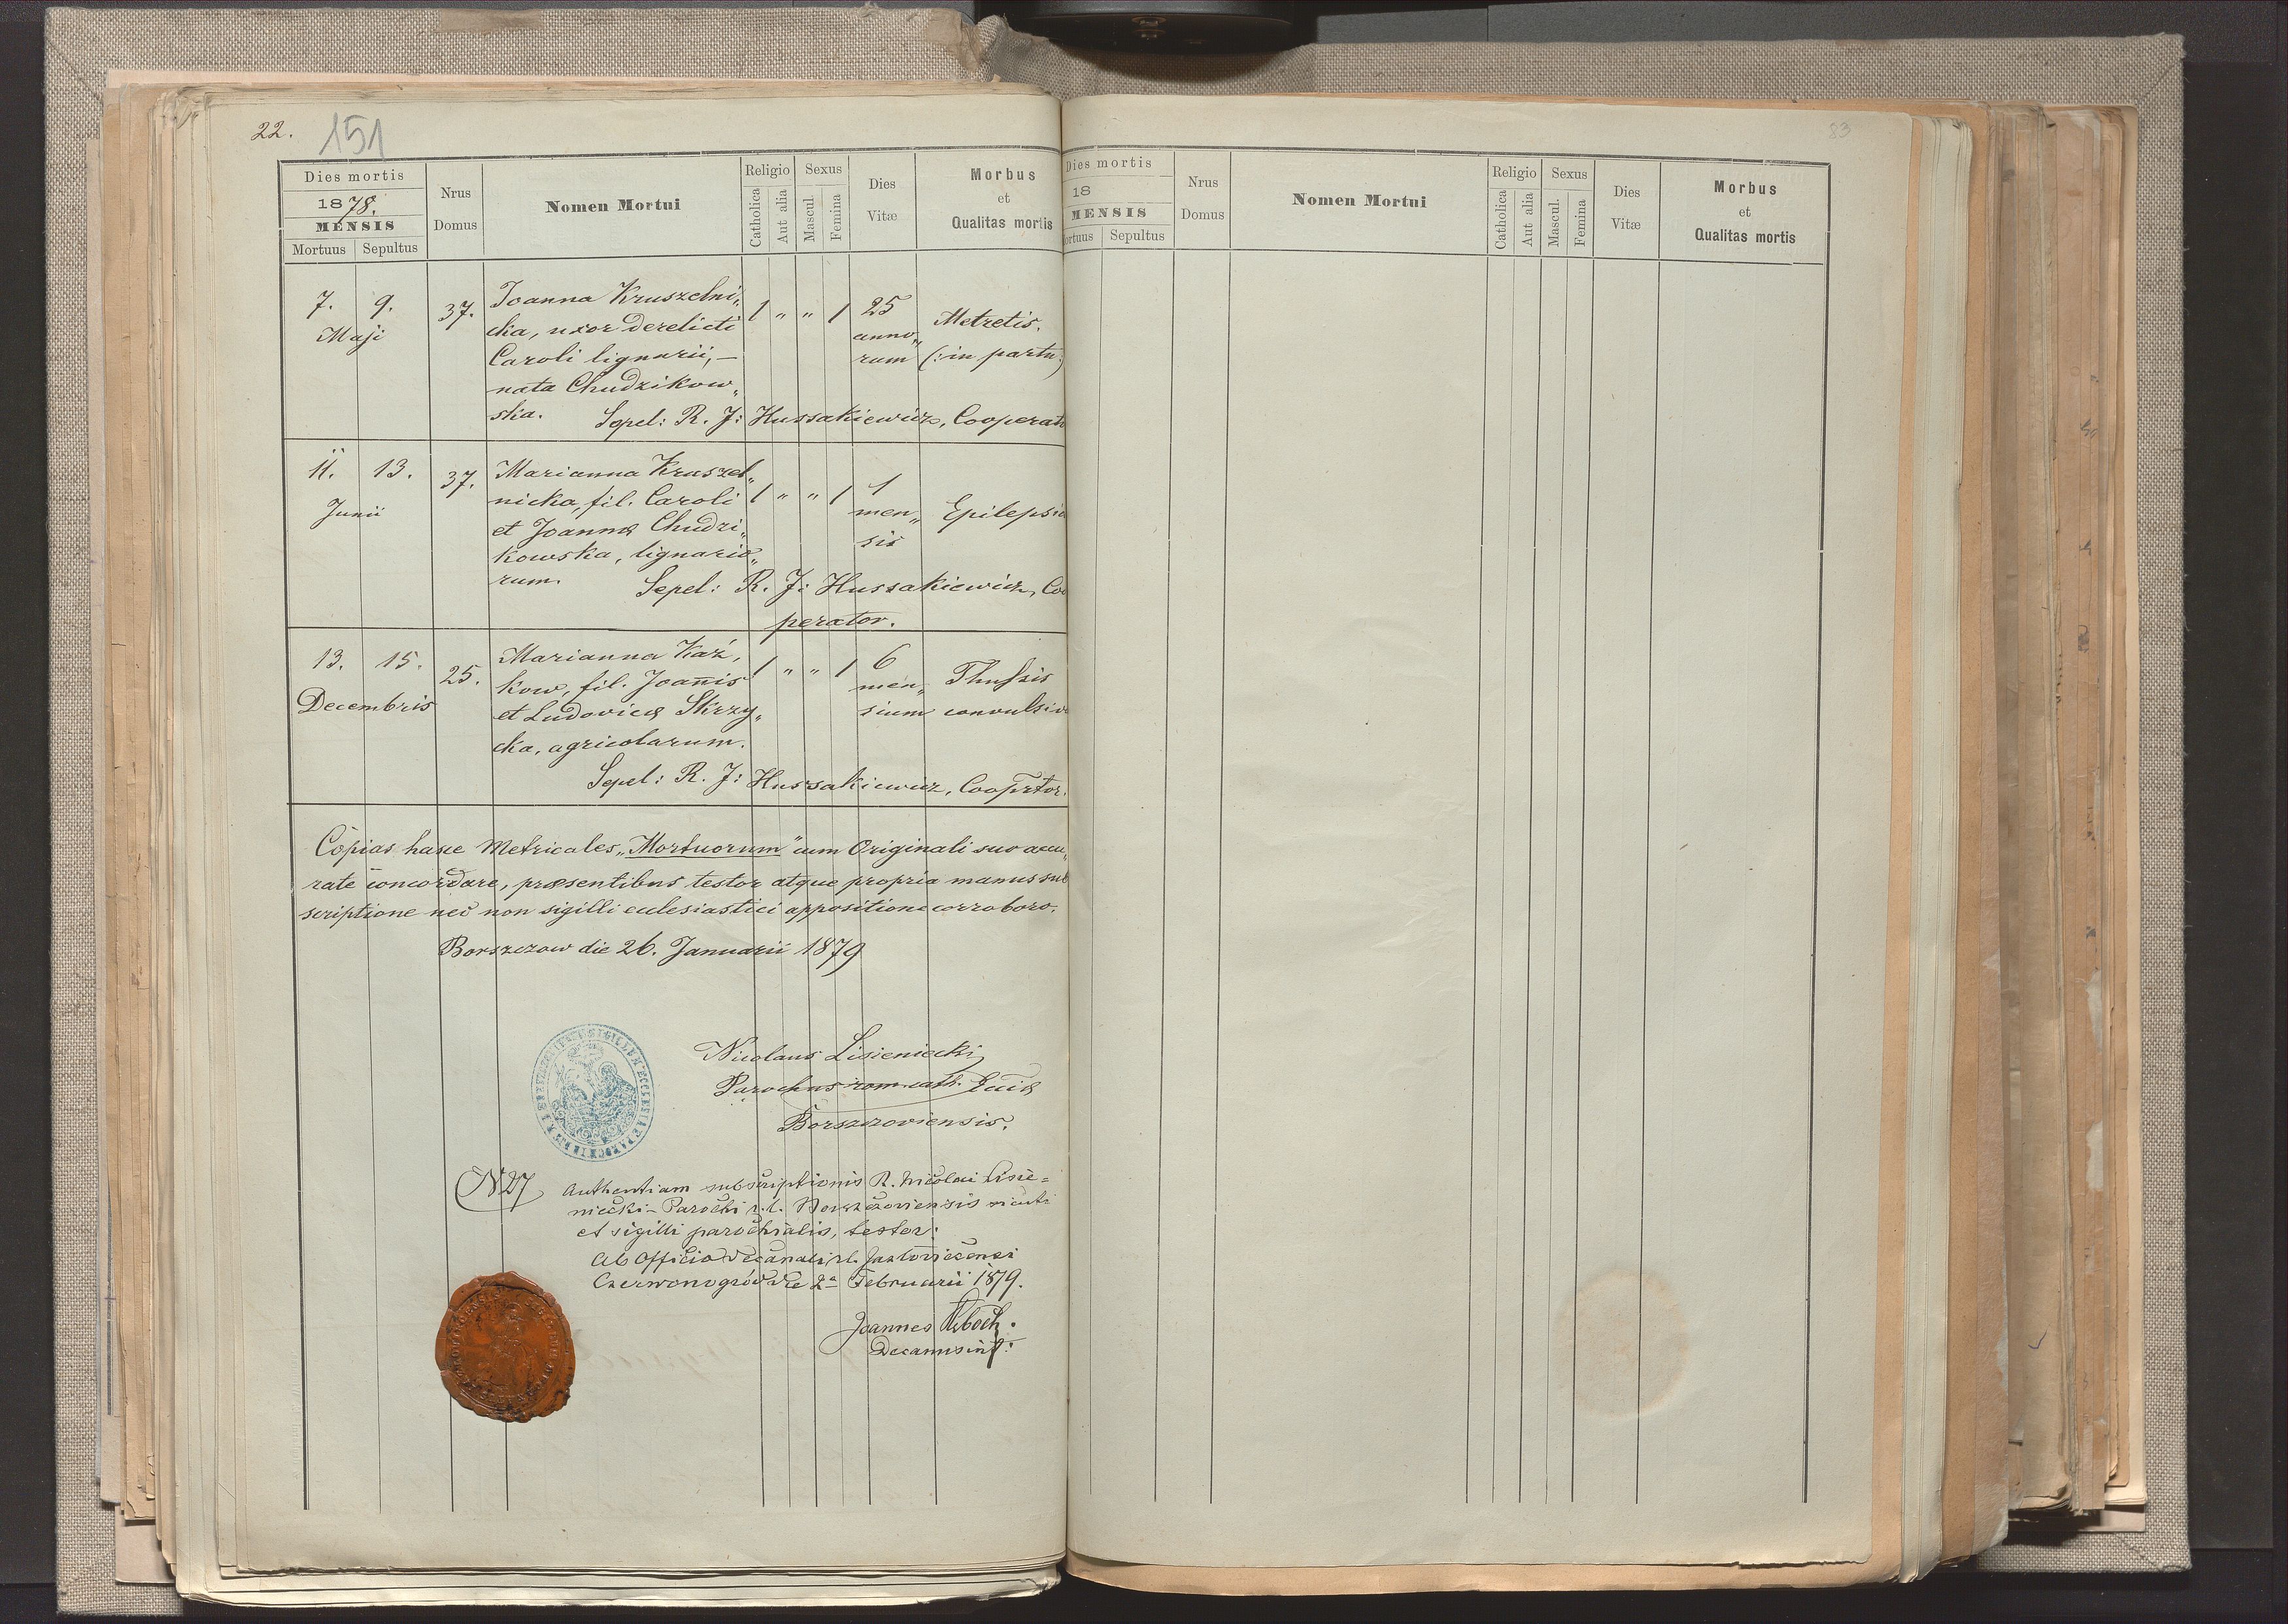 22. 151
Dies mortis
1878.
MENSIS
Mortuus Sepultus
Nrus
Domus
Nomen Mortui
Religio
Catholica
Aut alia
Sexus
Mascul.
Femina
Dies
Vitæ
Morbus
et
Qualitas mortis
7. 9. 37. Joanna Kruszelni„ 1 „ „ 1 25 Metretis.
Maji cka, uxor derelicti anno„
Caroli lignarii,— rum (: in partu :)
nata Chudzikow„
ska. Sepel: R. J: Hussakiewicz, Cooperat
11. 13. 37. Marianna Kruszel„ 1 „ „ 1 1
Junii nicka, fil. Caroli men„ Epilepsia
et Joannæ Chudzi„ sis
kowska, lignario„
rum. Sepel: R. J: Hussakiewicz, Coo
perator.
13. 15. 25. Marianna Kaź, 1 „ „ 1 6
Decembris kow, fil. Joan̄is men„ Thuſsis
et Ludovicæ Skrzy„ sium convulsiv
cka, agricolarum.
Sepel: R. J: Hussakiewicz, Cooprtor.
Copias hasce Metricales „Mortuorum" cum Originali suo accu„
rate concordare, præsentibus testor atque propria manus sub
scriptione nec non sigilli ecclesiastici appositione corroboro.
Borszczow die 26. Januarii 1879
Nicolaus Lisieniecki
Parochus rom. cath.
Borszczoviensis.
N 27 Authentiam subscriptionis R. Nicolai Lisie=
niecki - Parochi r. l. Borszczoviensis sicuti
et sigilli parochialis, testor:
Ab Officio Decanali r. l. Jazłoviecensi
Czerwonogród die 2ª Februarii 1879.
Joannes
Decanus
83
Dies mortis
18
MENSIS
Mortuus Sepultus
Nrus
Domus
Nomen Mortui
Religio
Catholica
Aut alia
Sexus
Mascul.
Femina
Dies
Vitæ
Morbus
et
Qualitas mortis